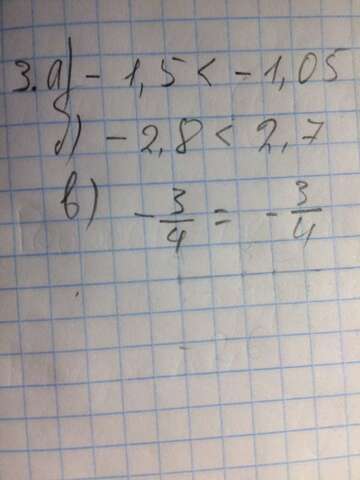 3. а) - 1,5 < - 1,05
б) - 2,8 < 2,7
в) - 3/4 = - 3/4